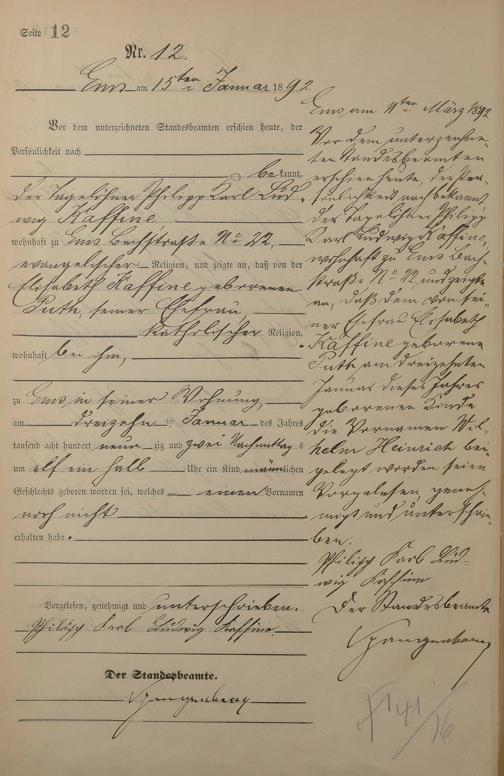 Seite 12
Nr. 12.
Ems am 15ten Januar 1892
Vor dem unterzeichneten Standesbeamten erschien heute, der
Persönlichkeit nach
bekannt,
der Tagelöhner Philipp Karl Lud-
wig Kaffine
wohnhaft zu Ems Bachstraße No 22,
evangelischer Religion, und zeigte an, daß von der
Elisabeth Kaffine geborenen
Puth, seiner Ehefrau,
katholischer Religion,
wohnhaft bei ihm,
zu Ems in seiner Wohnung,
am dreizehn ten Januar des Jahres
tausend acht hundert neun zig und zwei Nachmittags
um elf ein halb Uhr ein Kind männlichen
Geschlechts geboren worden sei, welches einen Vornamen
noch nicht
erhalten habe.
Vorgelesen, genehmigt und unterschrieben.
Philipp Karl Ludwig Kaffine
Der Standesbeamte.
Spangenberg
Ems am 11ten März 1892
Vor dem unterzeichne-
ten Standesbeamten
erschien heute, der Per-
sönlichkeit nach bekannt,
der Tagelöhner Philipp
Karl Ludwig Kaffine,
wohnhaft zu Ems Bach-
straße No 22 und zeigte
an, daß dem von sei-
ner Ehefrau Elisabeth
Kaffine geborene
Puth am dreizehnten
Januar dieses Jahres
geborenen Kinde
die Vornamen Wil-
helm Heinrich bei-
gelegt worden seien
Vorgelesen, geneh-
migt und unterschrie-
ben.
Philipp Karl Lud-
wig Kaffine
Der Standesbeamte
Spangenberg
141/16